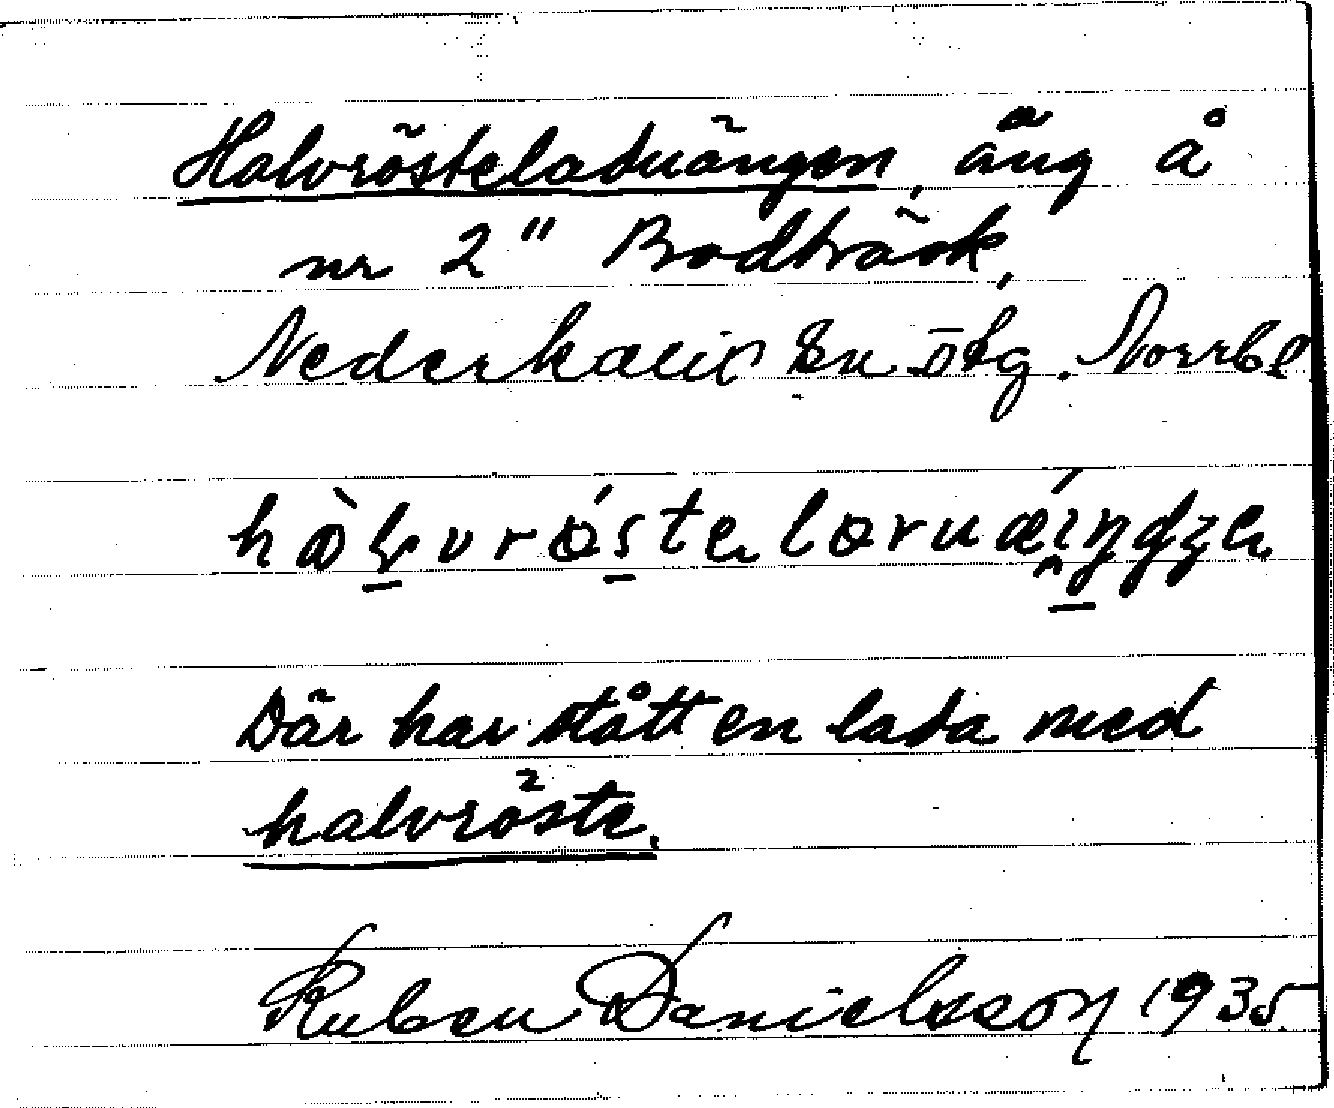 Halvrösteladuängen, äng å
nr 2" Bodträsk,
Nederkalix sn
Där har stått en lada med
halvröste.
Ruben Danielsson 1935